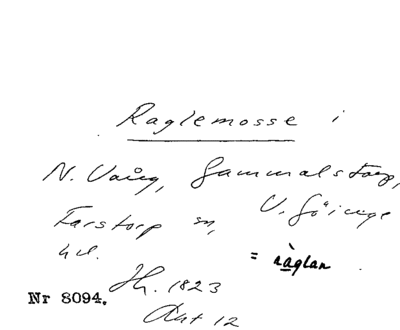 Raglemosse i
N. Vång, Gammalstorp,
Farstorp sn, V. Göinge
hd. = ràglan
Jh. 1823
Nr 8094.
Akt 12